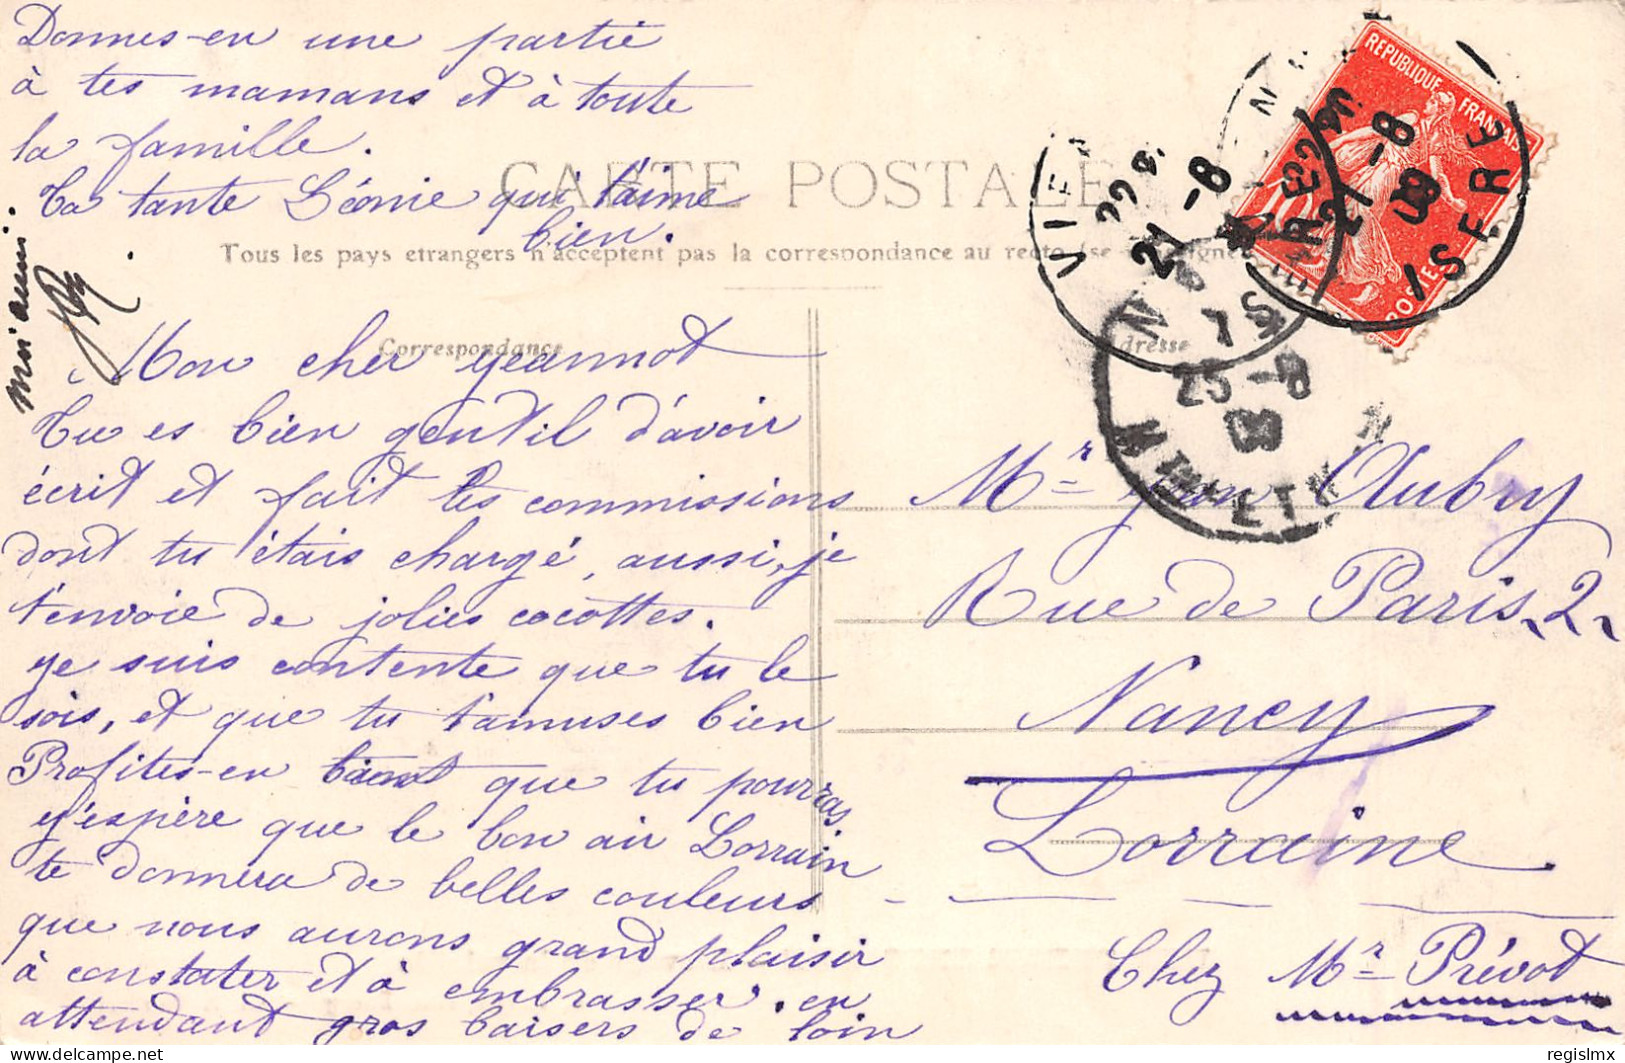 Donnes-en une partie
à tes mamans et à toute
la famille.
Ta tante Léonie qui t'aime
bien.
CARTE POSTALE
Tous les pays etrangers n'acceptent pas la correspondance au recto (se
Correspondance
Adresse
Mon cher Jeannot
Tu es bien gentil d'avoir
écrit et fait les commissions
dont tu étais chargé, aussi, je
t'envoie de jolies cocottes.
Je suis contente que tu le
sois, et que tu t'amuses bien
Profites-en tant que tu pourras
J'espère que le bon air Lorrain
te donnera de belles couleurs
que nous aurons grand plaisir
à constater et à embrasser. en
attendant gros baisers de loin
REPUBLIQUE FRANÇAISE
10
POSTES
21 -8
09
ISERE
21 -8
Mr Jean Aubry
Rue de Paris, 2,
Nancy
Lorraine.
Chez Mr Prévot
delcampe.net
regislmx